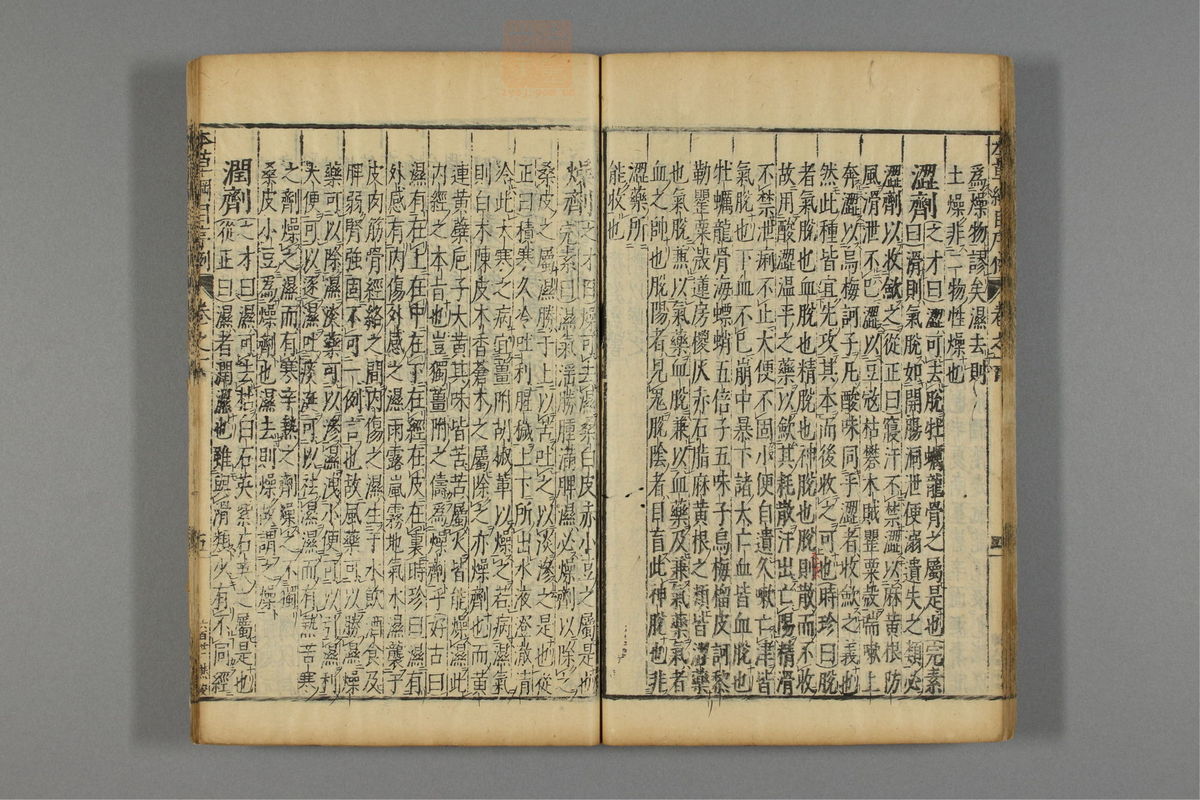 為燥物謬矣濕去則
土燥非二物性燥也
澀劑之才曰澀可去脫牡蠣龍骨之屬是也完素
曰滑則氣脫如開腸洞泄便溺遺失之類必
澀劑以收斂之從正曰寢汗不禁澀以麻黃根防
風滑泄不已澀以豆蔻枯礬木賊罌粟殼喘嗽上
奔澀以烏梅訶子凡酸味同乎澀者收斂之義也
然此種皆宜先攻其本而後收之可也時珍曰脫
者氣脫也血脫也精脫也神脫也脫則散而不收
故用酸澀溫平之藥以斂其耗散汗出亡陽精滑
不禁泄痢不止大便不固小便自遺久嗽亡津皆
氣脫也下血不已崩中暴下諸大亡血皆血脫也
牡蠣龍骨海螵蛸五倍子五味子烏梅榴皮訶黎
勒罌粟殼蓮房椶灰赤石脂麻黃根之類皆澀藥
也氣脫兼以氣藥血脫兼以血藥及兼氣藥氣者
血之帥也脫陽者見鬼脫陰者目盲此神脫也非
澀藥所
能收也
燥劑之才曰燥可去濕桑白皮赤小豆之屬是也
完素曰濕氣淫勝腫滿脾濕必燥劑以除之
桑皮之屬濕勝于上以苦吐之以淡滲之是也從
正曰積寒久冷吐利腥穢上下所出水液澄澈清
冷此大寒之病宜薑附胡椒輩以燥之若病濕氣
則白朮陳皮木香蒼朮之屬除之亦燥劑也而黃
連黃蘗卮子大黃其味皆苦苦屬火皆能燥濕此
內經之本旨也豈獨薑附之儔為燥劑乎好古曰
濕有在上在中在下在經在皮在裏時珍曰濕有
外感有內傷外感之濕雨露嵐霧地氣水濕襲于
皮肉筋骨經絡之間內傷之濕生于水飲酒食及
脾弱腎強固不可一例言也故風藥可以勝濕燥
藥可以除濕淡藥可以滲濕洩小便可以引濕利
大便可以逐濕吐痰涎可以祛濕濕而有熱苦寒
之劑燥之濕而有寒辛熱之劑燥之不獨
桑皮小豆為燥劑也濕去則燥故謂之燥
潤劑之才曰濕可去枯白石英紫石英之屬是也
從正曰濕者潤濕也雖與滑類少有不同經